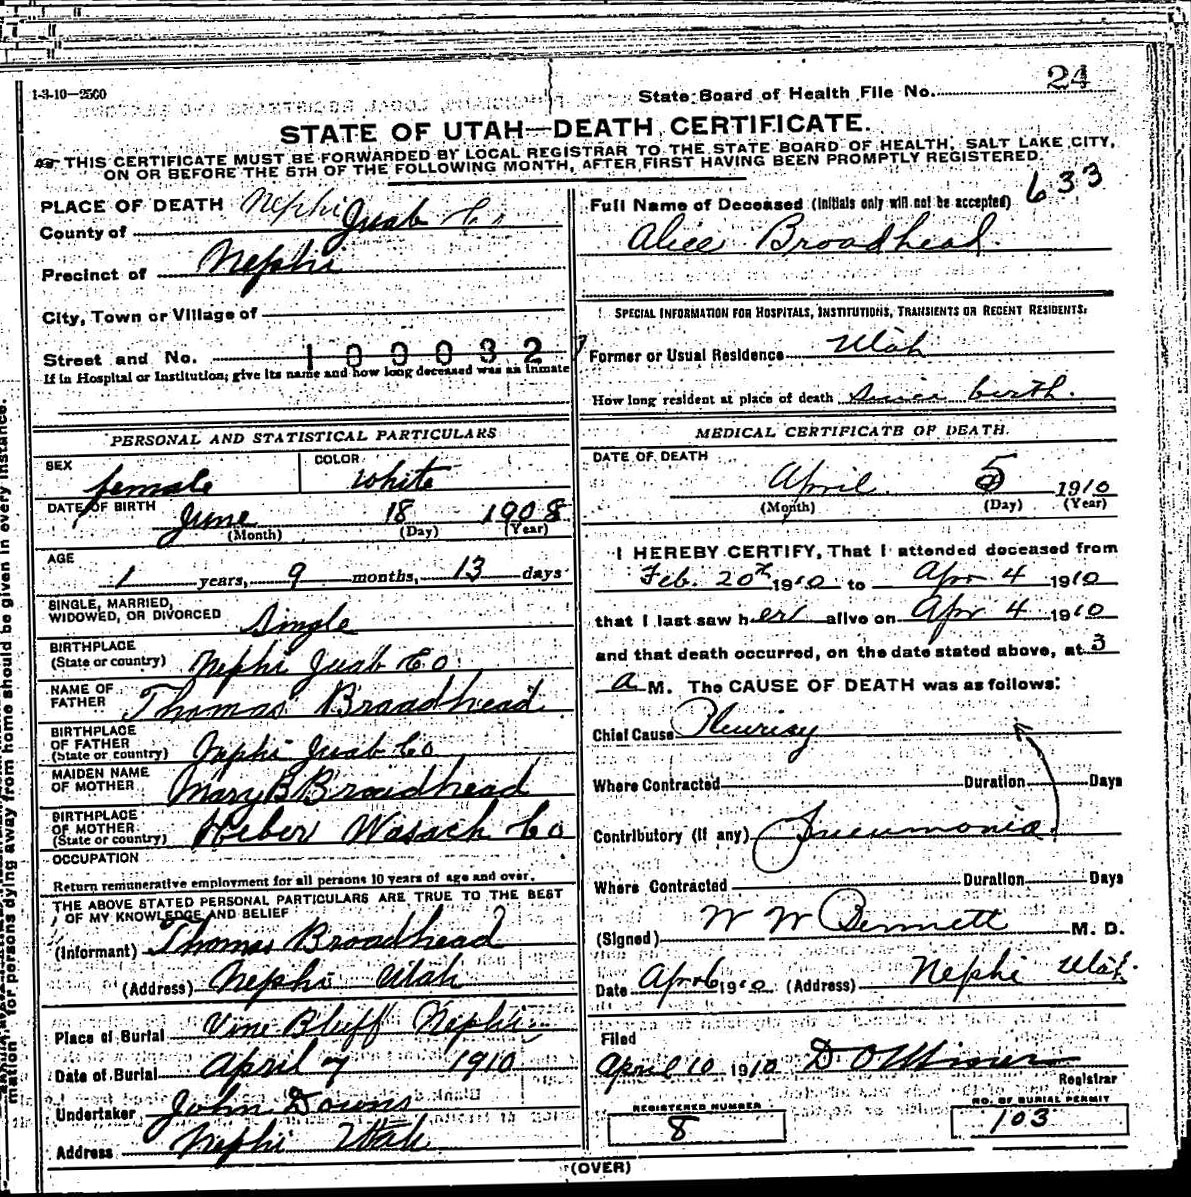 1-3-10—2500
State Board of Health File No. 24
STATE OF UTAH—DEATH CERTIFICATE.
THIS CERTIFICATE MUST BE FORWARDED BY LOCAL REGISTRAR TO THE STATE BOARD OF HEALTH, SALT LAKE CITY,
ON OR BEFORE THE 5TH OF THE FOLLOWING MONTH, AFTER FIRST HAVING BEEN PROMPTLY REGISTERED.
633
PLACE OF DEATH Nephi
County of Juab Co
Precinct of Nephi
City, Town or Village of
Street and No. 100032
If in Hospital or Institution; give its name and how long deceased was an inmate
Full Name of Deceased (Initials only will not be accepted)
Alice Broadhead.
SPECIAL INFORMATION FOR HOSPITALS, INSTITUTIONS, TRANSIENTS OR RECENT RESIDENTS:
Former or Usual Residence Utah
How long resident at place of death since birth.
PERSONAL AND STATISTICAL PARTICULARS
SEX female COLOR white
DATE OF BIRTH June 18 1908
(Month) (Day) (Year)
AGE
1 years, 9 months, 13 days
SINGLE, MARRIED,
WIDOWED, OR DIVORCED Single
BIRTHPLACE
(State or country) Nephi Juab Co
NAME OF
FATHER Thomas Broadhead
BIRTHPLACE
OF FATHER
(State or country) Nephi Juab Co
MAIDEN NAME
OF MOTHER Mary B Broadhead
BIRTHPLACE
OF MOTHER
(State or country) Heber Wasach Co
OCCUPATION
Return remunerative employment for all persons 10 years of age and over.
THE ABOVE STATED PERSONAL PARTICULARS ARE TRUE TO THE BEST
OF MY KNOWLEDGE AND BELIEF
(Informant) Thomas Broadhead
(Address) Nephi Utah
Place of Burial Vine Bluff Nephi
Date of Burial April 7 1910
Undertaker John Downs
Address Nephi Utah
MEDICAL CERTIFICATE OF DEATH.
DATE OF DEATH
April 5 1910
(Month) (Day) (Year)
I HEREBY CERTIFY, That I attended deceased from
Feb. 20th 1910 to Apr 4 1910
that I last saw her alive on Apr 4 1910
and that death occurred, on the date stated above, at 3
a M. The CAUSE OF DEATH was as follows:
Chief Cause Pleurisy
Where Contracted Duration Days
Contributory (If any) Pneumonia
Where Contracted Duration Days
(Signed) W W Bennett M. D.
Date Apr 6 1910 (Address) Nephi Utah.
Filed
April 10 1910 D O Miner
Registrar
REGISTERED NUMBER
8
NO. OF BURIAL PERMIT
103
(OVER)
mation for persons dying away from home should be given in every instance.